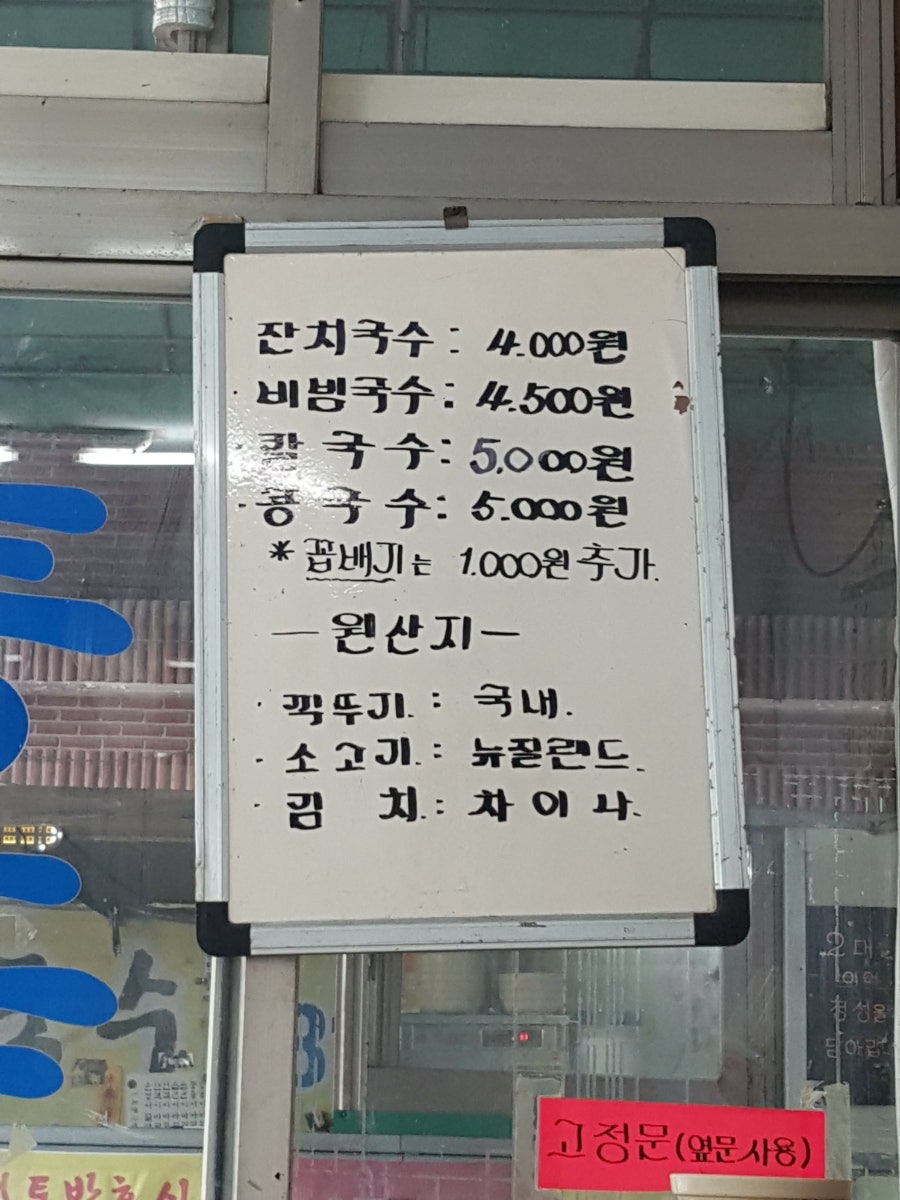 잔치국수: 4.000원
·비빔국수: 4.500원
·칼국수: 5.000원
·콩국수: 5.000원
*꼽배기는 1.000원추가.
-원산지-
·깍뚜기.: 국내.
·소고기.: 뉴질랜드.
·김치.: 차이나.
국수
정성을
고정문(옆문사용)